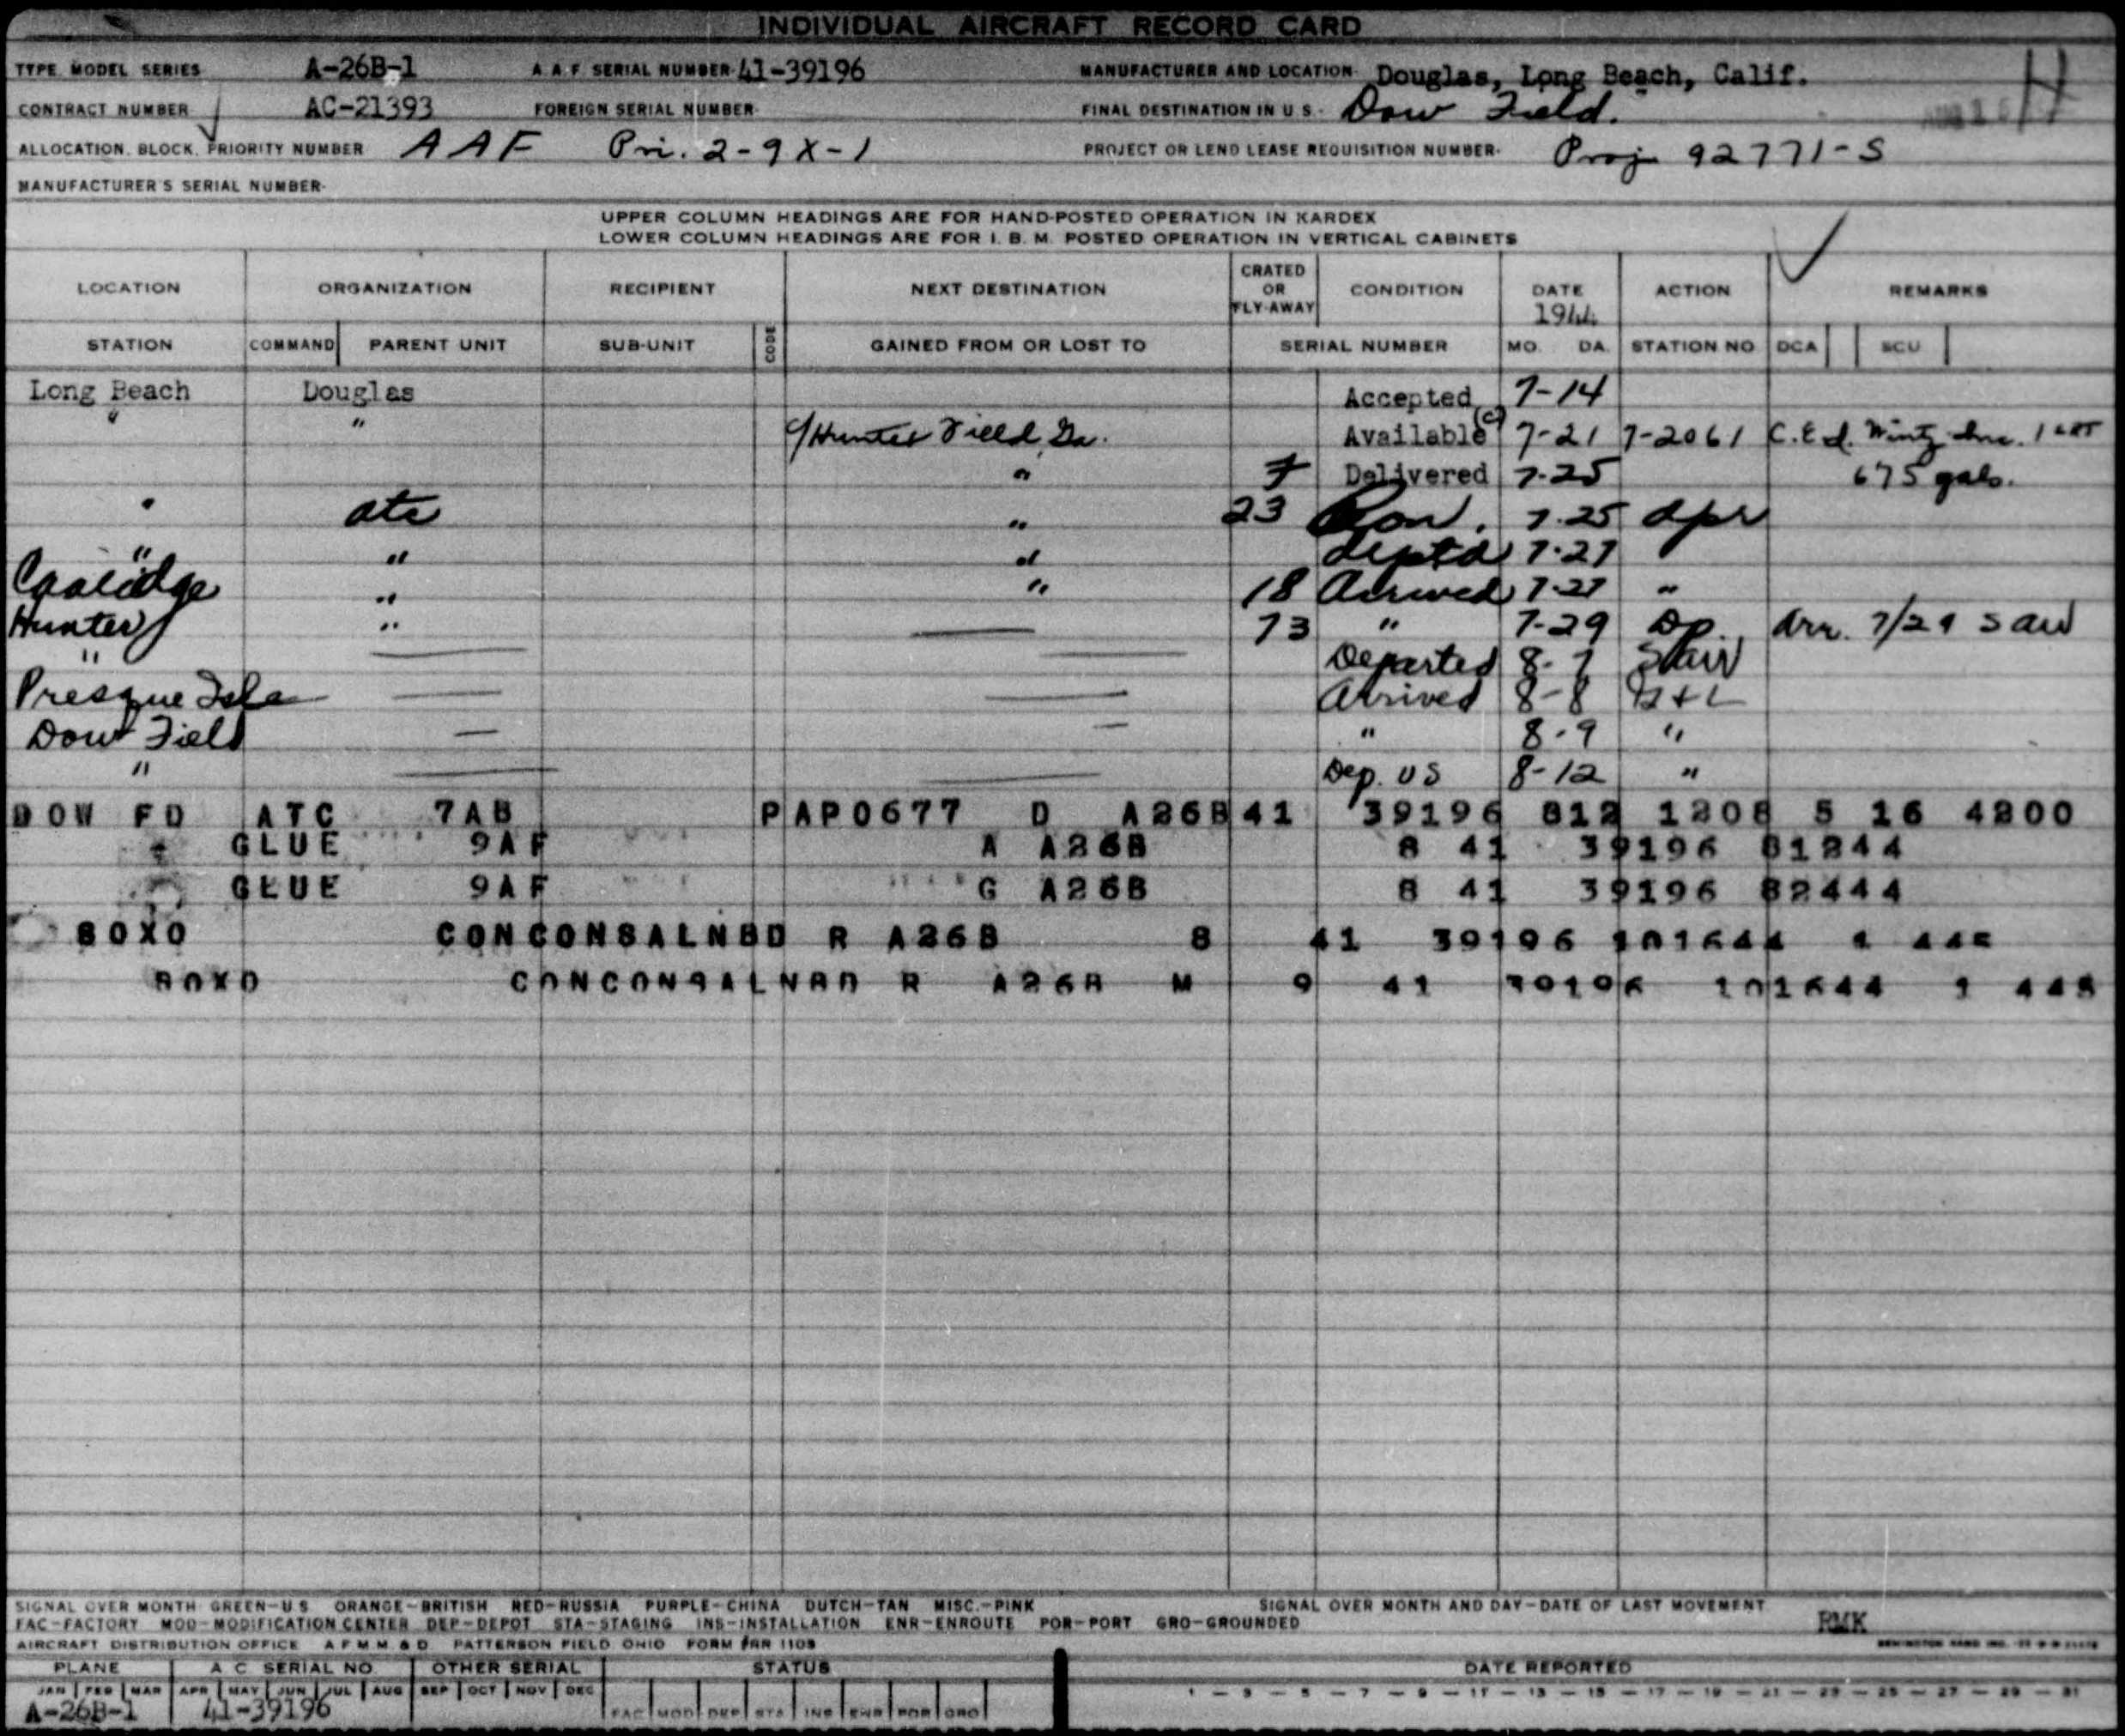 INDIVIDUAL AIRCRAFT RECORD CARD
TYPE MODEL SERIES A-26B-1 A. A. F. SERIAL NUMBER- 41-39196 MANUFACTURER AND LOCATION- Douglas, Long Beach, Calif. H
CONTRACT NUMBER AC-21393 FOREIGN SERIAL NUMBER- FINAL DESTINATION IN U S - Dow Field.
ALLOCATION, BLOCK, PRIORITY NUMBER AAF Pri. 2-9X-1 PROJECT OR LEND LEASE REQUISITION NUMBER- Proj 92771-S
MANUFACTURER'S SERIAL NUMBER-
UPPER COLUMN HEADINGS ARE FOR HAND-POSTED OPERATION IN KARDEX
LOWER COLUMN HEADINGS ARE FOR I. B. M. POSTED OPERATION IN VERTICAL CABINETS
LOCATION ORGANIZATION RECIPIENT NEXT DESTINATION CRATED OR FLY-AWAY CONDITION DATE 1944 ACTION REMARKS
STATION COMMAND PARENT UNIT SUB-UNIT CODE GAINED FROM OR LOST TO SERIAL NUMBER MO. DA. STATION NO DCA SCU
Long Beach Douglas Accepted 7-14
" " Hunter Field, Ga. Available (c) 7-21 7-2061 C.E.d.
" F Delivered 7-25 675 gals.
" atc " 23 7-25
" " " deptd 7-27
Coolidge " " 18 Arrived 7-27 "
Hunter " — 73 " 7-29 Dp. Arr. 7/29 Sau
" — — Departed 8-7 Sau
Presque Isle — — Arrived 8-8
Dow Field — — " 8-9 "
" — — Dep. US 8-12 "
DOW FD ATC 7AB PAP0677 D A26B 41 39196 812 1208 5 16 4200
GLUE 9AF A A26B 8 41 39196 81244
GLUE 9AF G A26B 8 41 39196 82444
BOXO CONCONSALNBD R A26B 8 41 39196 101644 1 445
BOXO CONCONSALNBD R A26B M 9 41 39196 101644 1 445
SIGNAL OVER MONTH GREEN-U S ORANGE-BRITISH RED-RUSSIA PURPLE-CHINA DUTCH-TAN MISC.-PINK SIGNAL OVER MONTH AND DAY-DATE OF LAST MOVEMENT
FAC-FACTORY MOD-MODIFICATION CENTER DEP-DEPOT STA-STAGING INS-INSTALLATION ENR-ENROUTE POR-PORT GRO-GROUNDED RMK
AIRCRAFT DISTRIBUTION OFFICE A F M M & D PATTERSON FIELD OHIO FORM
PLANE A C SERIAL NO. OTHER SERIAL STATUS DATE REPORTED
JAN FEB MAR APR MAY JUN JUL AUG SEP OCT NOV DEC 1 - 3 - 5 - 7 - 9 - 11 - 13 - 15 - 17 - 19 - 21 - 23 - 25 - 27 - 29 - 31
A-26B-1 41-39196 FAC MOD DEP STA INS ENR POR GRO